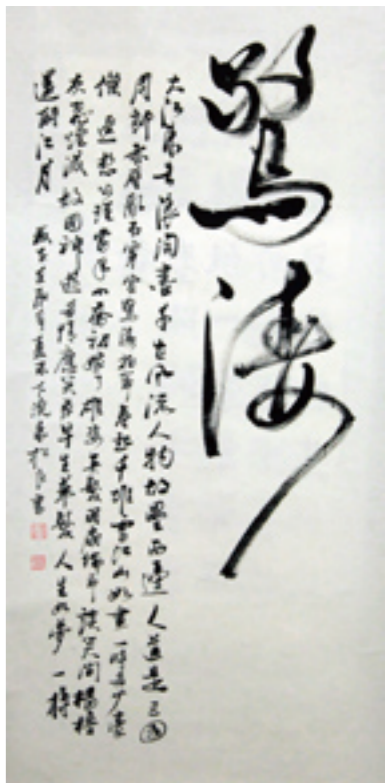 驚濤
大江東去浪淘盡千古風流人物故壘西邊人道是三國
周郎赤壁亂石穿空驚濤拍岸卷起千堆雪江山如畫一時多少豪
傑遥想公瑾當年小喬初嫁了雄姿英發羽扇綸巾談笑間檣櫓
灰飛煙滅故國神遊多情應笑我早生華髮人生如夢一樽
還酹江月